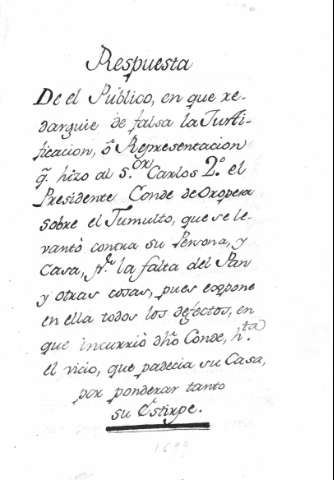 Respuesta
De el Público, en que re-
darguie de falsa la Justi-
ficacion, ô Representacion
q̃. hizo al S.ᵒʳ Carlos 2.º el
Presidente Conde de Oropesa
sobre el Tumulto, que se le-
vantò contra su Persona, y
Casa, p.ʳ la falta del Pan
y otras cosas, pues expone
en ella todos los defectos, en
que incurriò dho Conde, h.ᵗᵃ
el vicio, que padecia su Casa,
por ponderar tanto
su Estirpe.